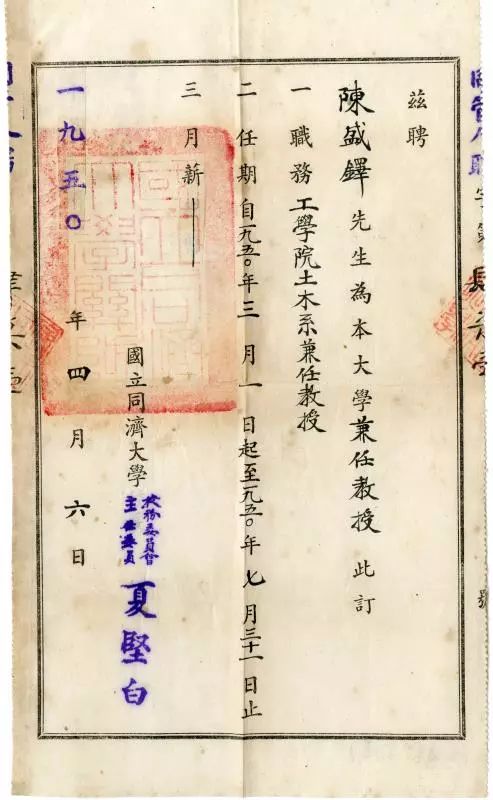 茲聘
陳盛鐸先生為本大學兼任教授此訂
一職務工學院土木系兼任教授
二任期自一九五〇年三月一日起至一九五〇年七月三十一日止
三月薪
國立同濟大學
校務委員會
主任委員
夏堅白
一九五〇年四月六日
號